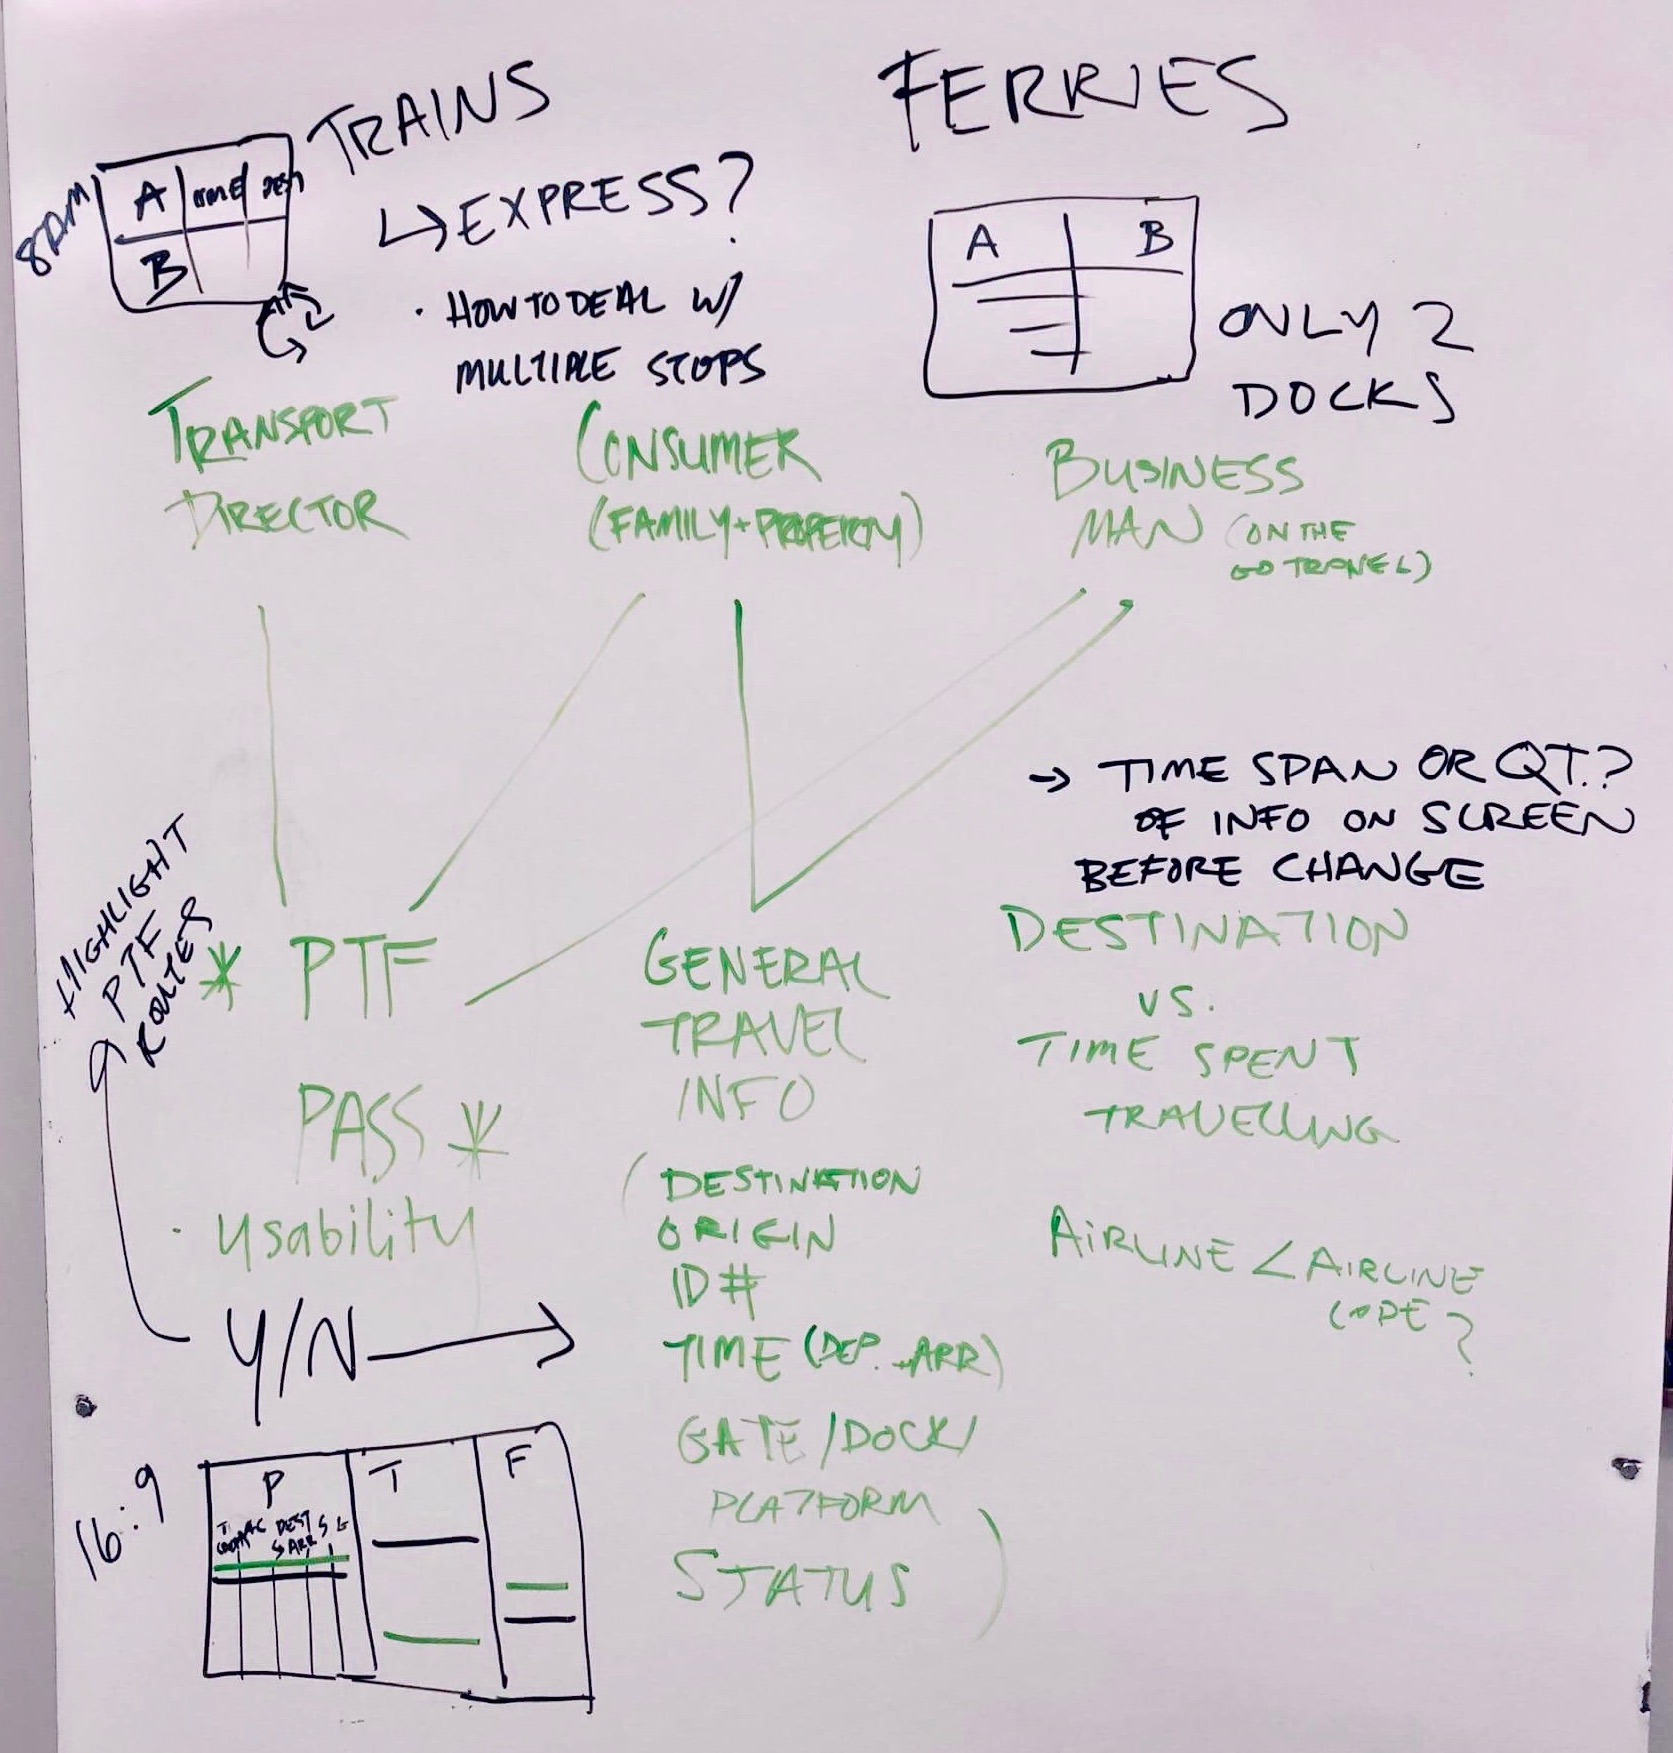 TRAINS
FERRIES
8AM
A
B
→ EXPRESS?
· HOW TO DEAL W/
MULTIPLE STOPS
A B
ONLY 2
DOCKS
TRANSPORT
DIRECTOR
CONSUMER
(FAMILY + PROPERTY)
BUSINESS
MAN (ON THE
GO
→ TIME SPAN OR QT.?
OF INFO ON SCREEN
BEFORE CHANGE
HIGHLIGHT
PTF
ROUTES
* PTF
PASS *
· usability
Y/N →
GENERAL
TRAVEL
INFO
(DESTINATION
ORIGIN
ID #
TIME (DEP. + ARR)
GATE/DOCK/
PLATFORM
STATUS)
DESTINATION
VS.
TIME SPENT
TRAVELLING
AIRLINE < AIRLINE
CODE?
16:9
P T F
DEST S G
ARR